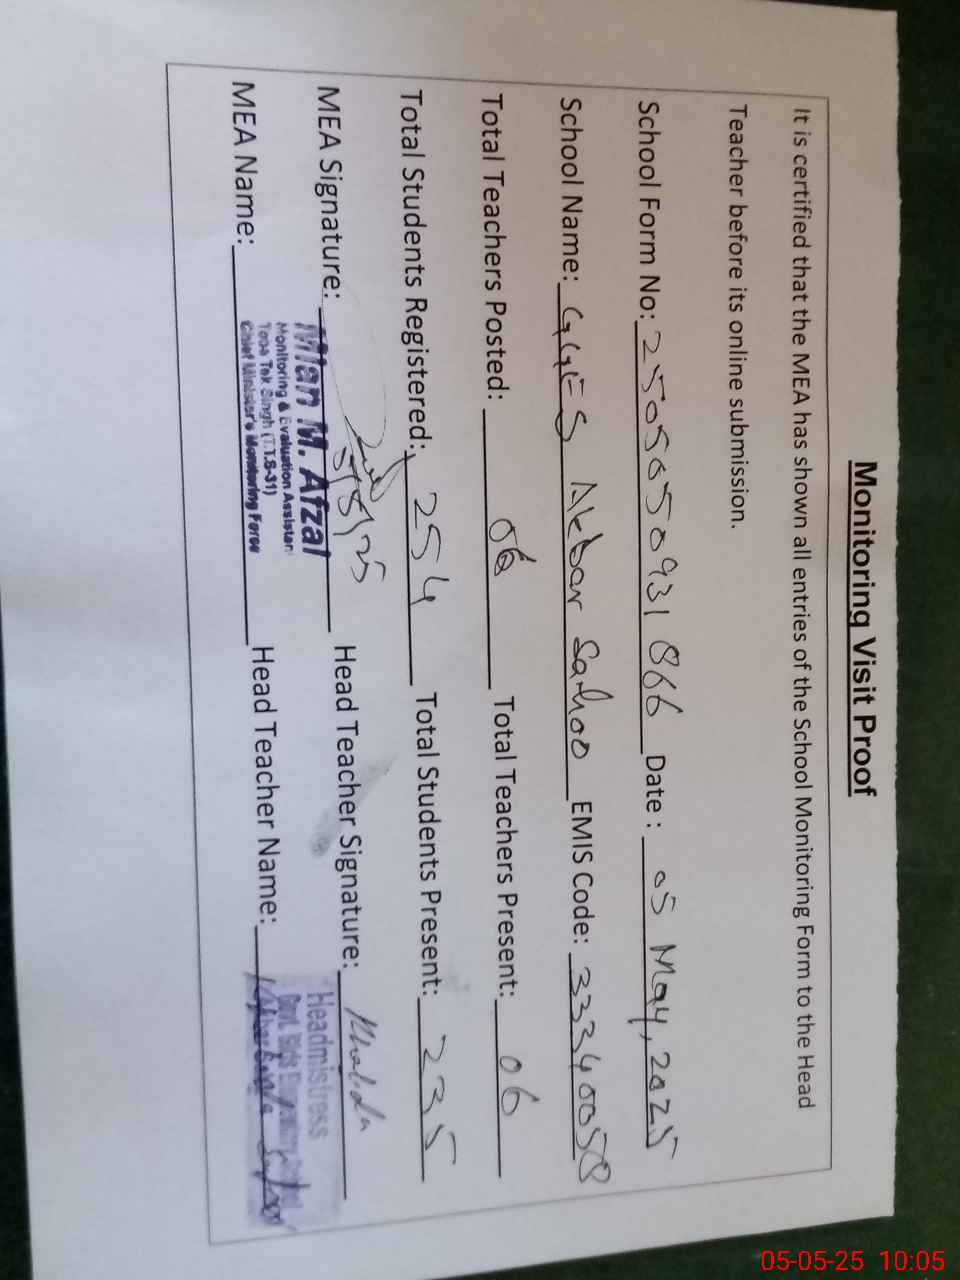 Monitoring Visit Proof
It is certified that the MEA has shown all entries of the School Monitoring Form to the Head
Teacher before its online submission.
School Form No: 2505050931866 Date : 05 May, 2025
School Name: GGES Akbar Sarhoo EMIS Code: 33340058
Total Teachers Posted: 06 Total Teachers Present: 06
Total Students Registered: 254 Total Students Present: 235
MEA Signature: 5/5/25 Head Teacher Signature: Khalida
Mian M. Afzal
Monitoring & Evaluation Assistan
Toba Tek Singh (T.T.S-31)
Chief Minister's Monitoring Force
Headmistress
Govt. Girls Elementary School
MEA Name: Head Teacher Name:
05-05-25 10:05